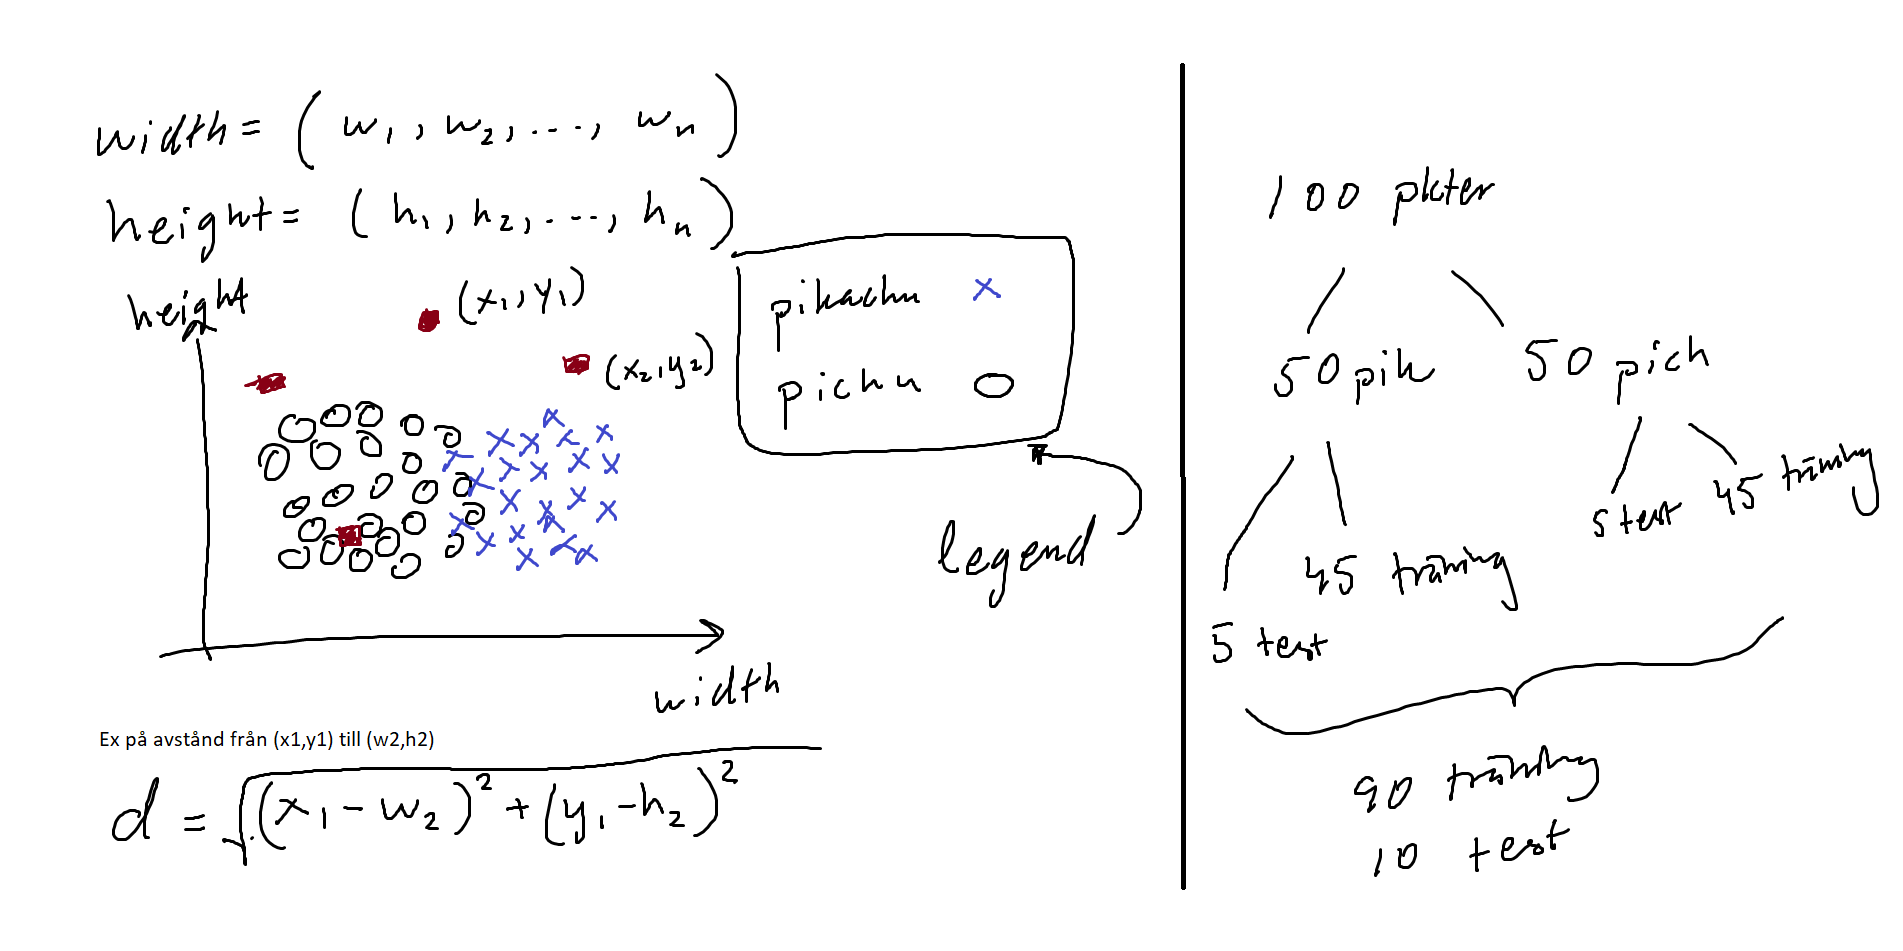 width = (w₁, w₂, ..., wₙ)
height = (h₁, h₂, ..., hₙ)
height
(x₁, y₁)
(x₂, y₂)
pikachu x
pichu O
legend
width
Ex på avstånd från (x1,y1) till (w2,h2)
d = √(x₁ - w₂)² + (y₁ - h₂)²
100 pkter
50 pik
50 pich
5 test
45 träning
5 test
45 träning
90 träning
10 test